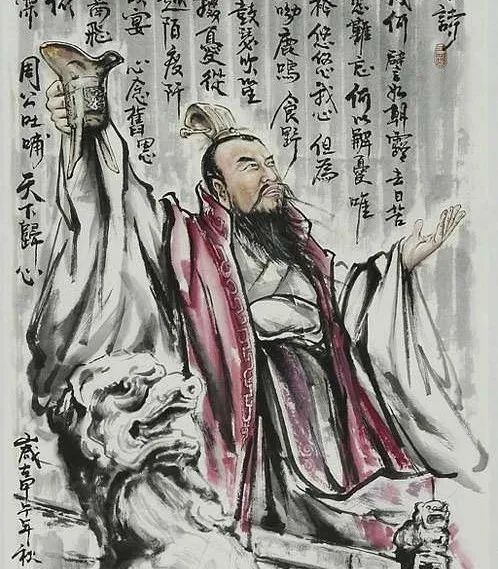 詩
幾何 譬如朝露 去日苦
思難忘 何以解憂 唯
衿 悠悠我心 但為
呦鹿鳴 食野
鼓瑟吹笙
掇 憂從
越陌度阡
宴 心念舊恩
南飛
深
周公吐哺 天下歸心
歲在甲午年秋